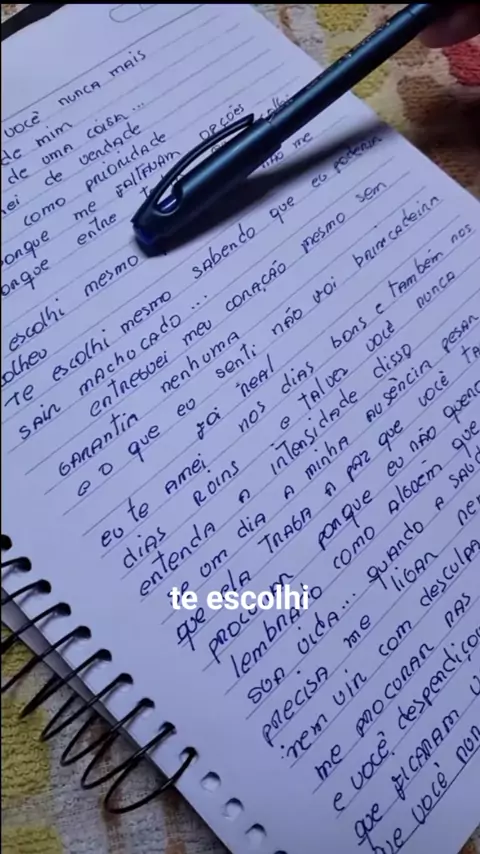 você nunca mais
de mim
de uma coisa...
ei de verdade
como prioridade
porque me faltavam opções
porque entre
não me
escolhi mesmo
olheu
te escolhi mesmo sabendo que eu poderia
sair machucado...
entreguei meu coração mesmo sem
garantia nenhuma
e o que eu senti não foi brincadeira
foi real
eu te amei nos dias bons e também nos
dias ruins e talvez você nunca
entenda a intensidade disso
se um dia a minha ausência pesar
que ela traga a paz que você
procurar porque eu não
lembrado como alguém que
sua vida... quando a
precisa me ligar
nem vir com desculpa
me procurar nas
e você
que ficaram
que você
te escolhi